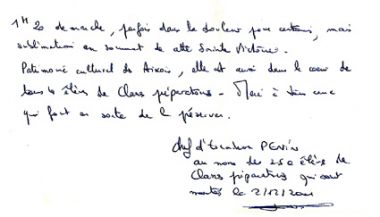 1H20 de marche, parfois dans la douleur pour certains, mais
sublimation au sommet de cette Sainte Victoire.
Patrimoine culturel des Aixois, elle est aussi dans le coeur de
tous les élèves de Classes préparatoires. Merci à tous ceux
qui font en sorte de la préserver.
Chef d'Escadron PENIN
au nom des 250 élèves de
Classes préparatoires qui sont
montés le 2/12/2001